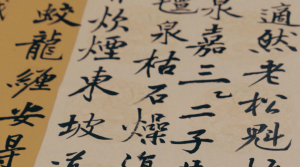 適然老松魁
泉嘉三乙二子
泉枯石燥復
炊煙東坡道
蛟龍纏安得